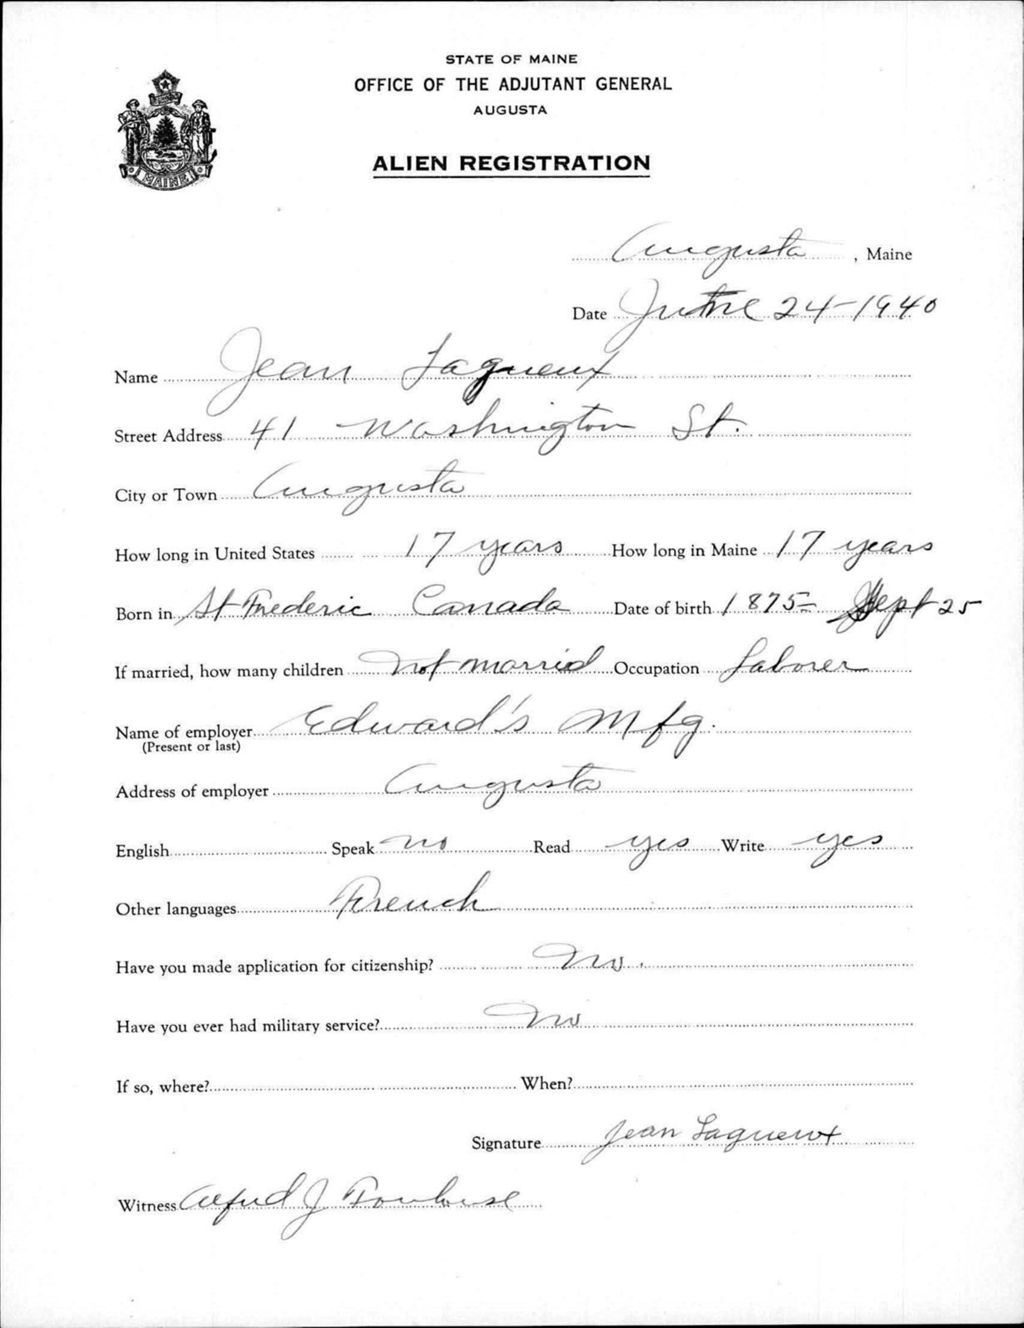 STATE OF MAINE
OFFICE OF THE ADJUTANT GENERAL
AUGUSTA
ALIEN REGISTRATION
MAINE
Augusta, Maine
Date June 24-1940
Name Jean Lagueux
Street Address 41 Washington St.
City or Town Augusta
How long in United States 17 years How long in Maine 17 years
Born in St Frederic Canada Date of birth 1875- Sept 25
If married, how many children not married Occupation Laborer
Name of employer Edward's Mfg.
(Present or last)
Address of employer Augusta
English Speak no Read yes Write yes
Other languages French
Have you made application for citizenship? No.
Have you ever had military service? No
If so, where? When?
Signature Jean Lagueux
Witness Alfred J Toulouse